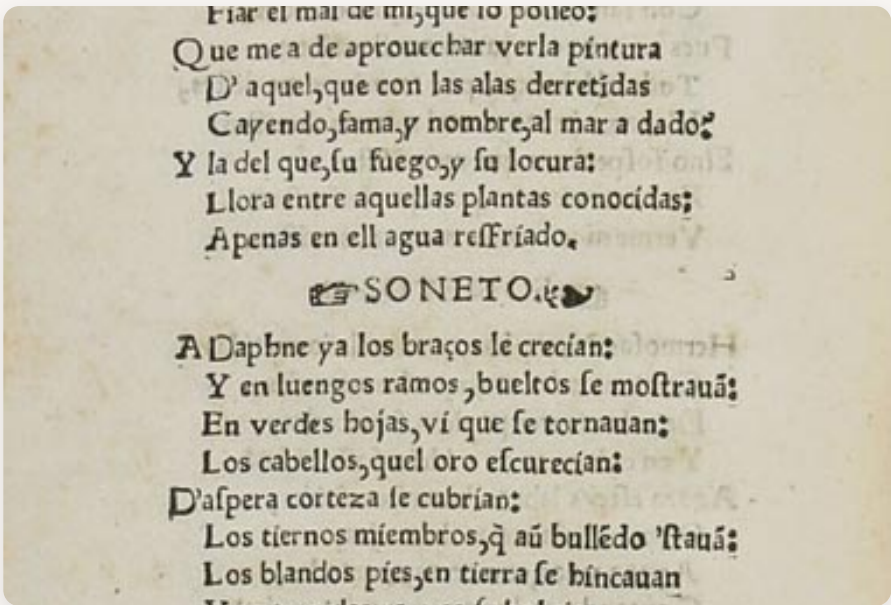 Fiar el mal de mi,que lo posseo:
Que me a de aprouechar ver la pintura
D' aquel,que con las alas derretidas
Cayendo,fama,y nombre,al mar a dado?
Y la del que,ſu fuego,y ſu locura:
Llora entre aquellas plantas conocidas;
Apenas en ell agua reſfriado.
☞SONETO.❧
A Daphne ya los braços le crecian:
Y en luengos ramos,bueltos ſe moſtrauā:
En verdes hojas,vi que ſe tornauan:
Los cabellos,quel oro eſcurecian:
D'aſpera corteza ſe cubrian:
Los tiernos miembros,q̄ aū bullēdo 'ſtauā:
Los blandos pies,en tierra ſe hincauan